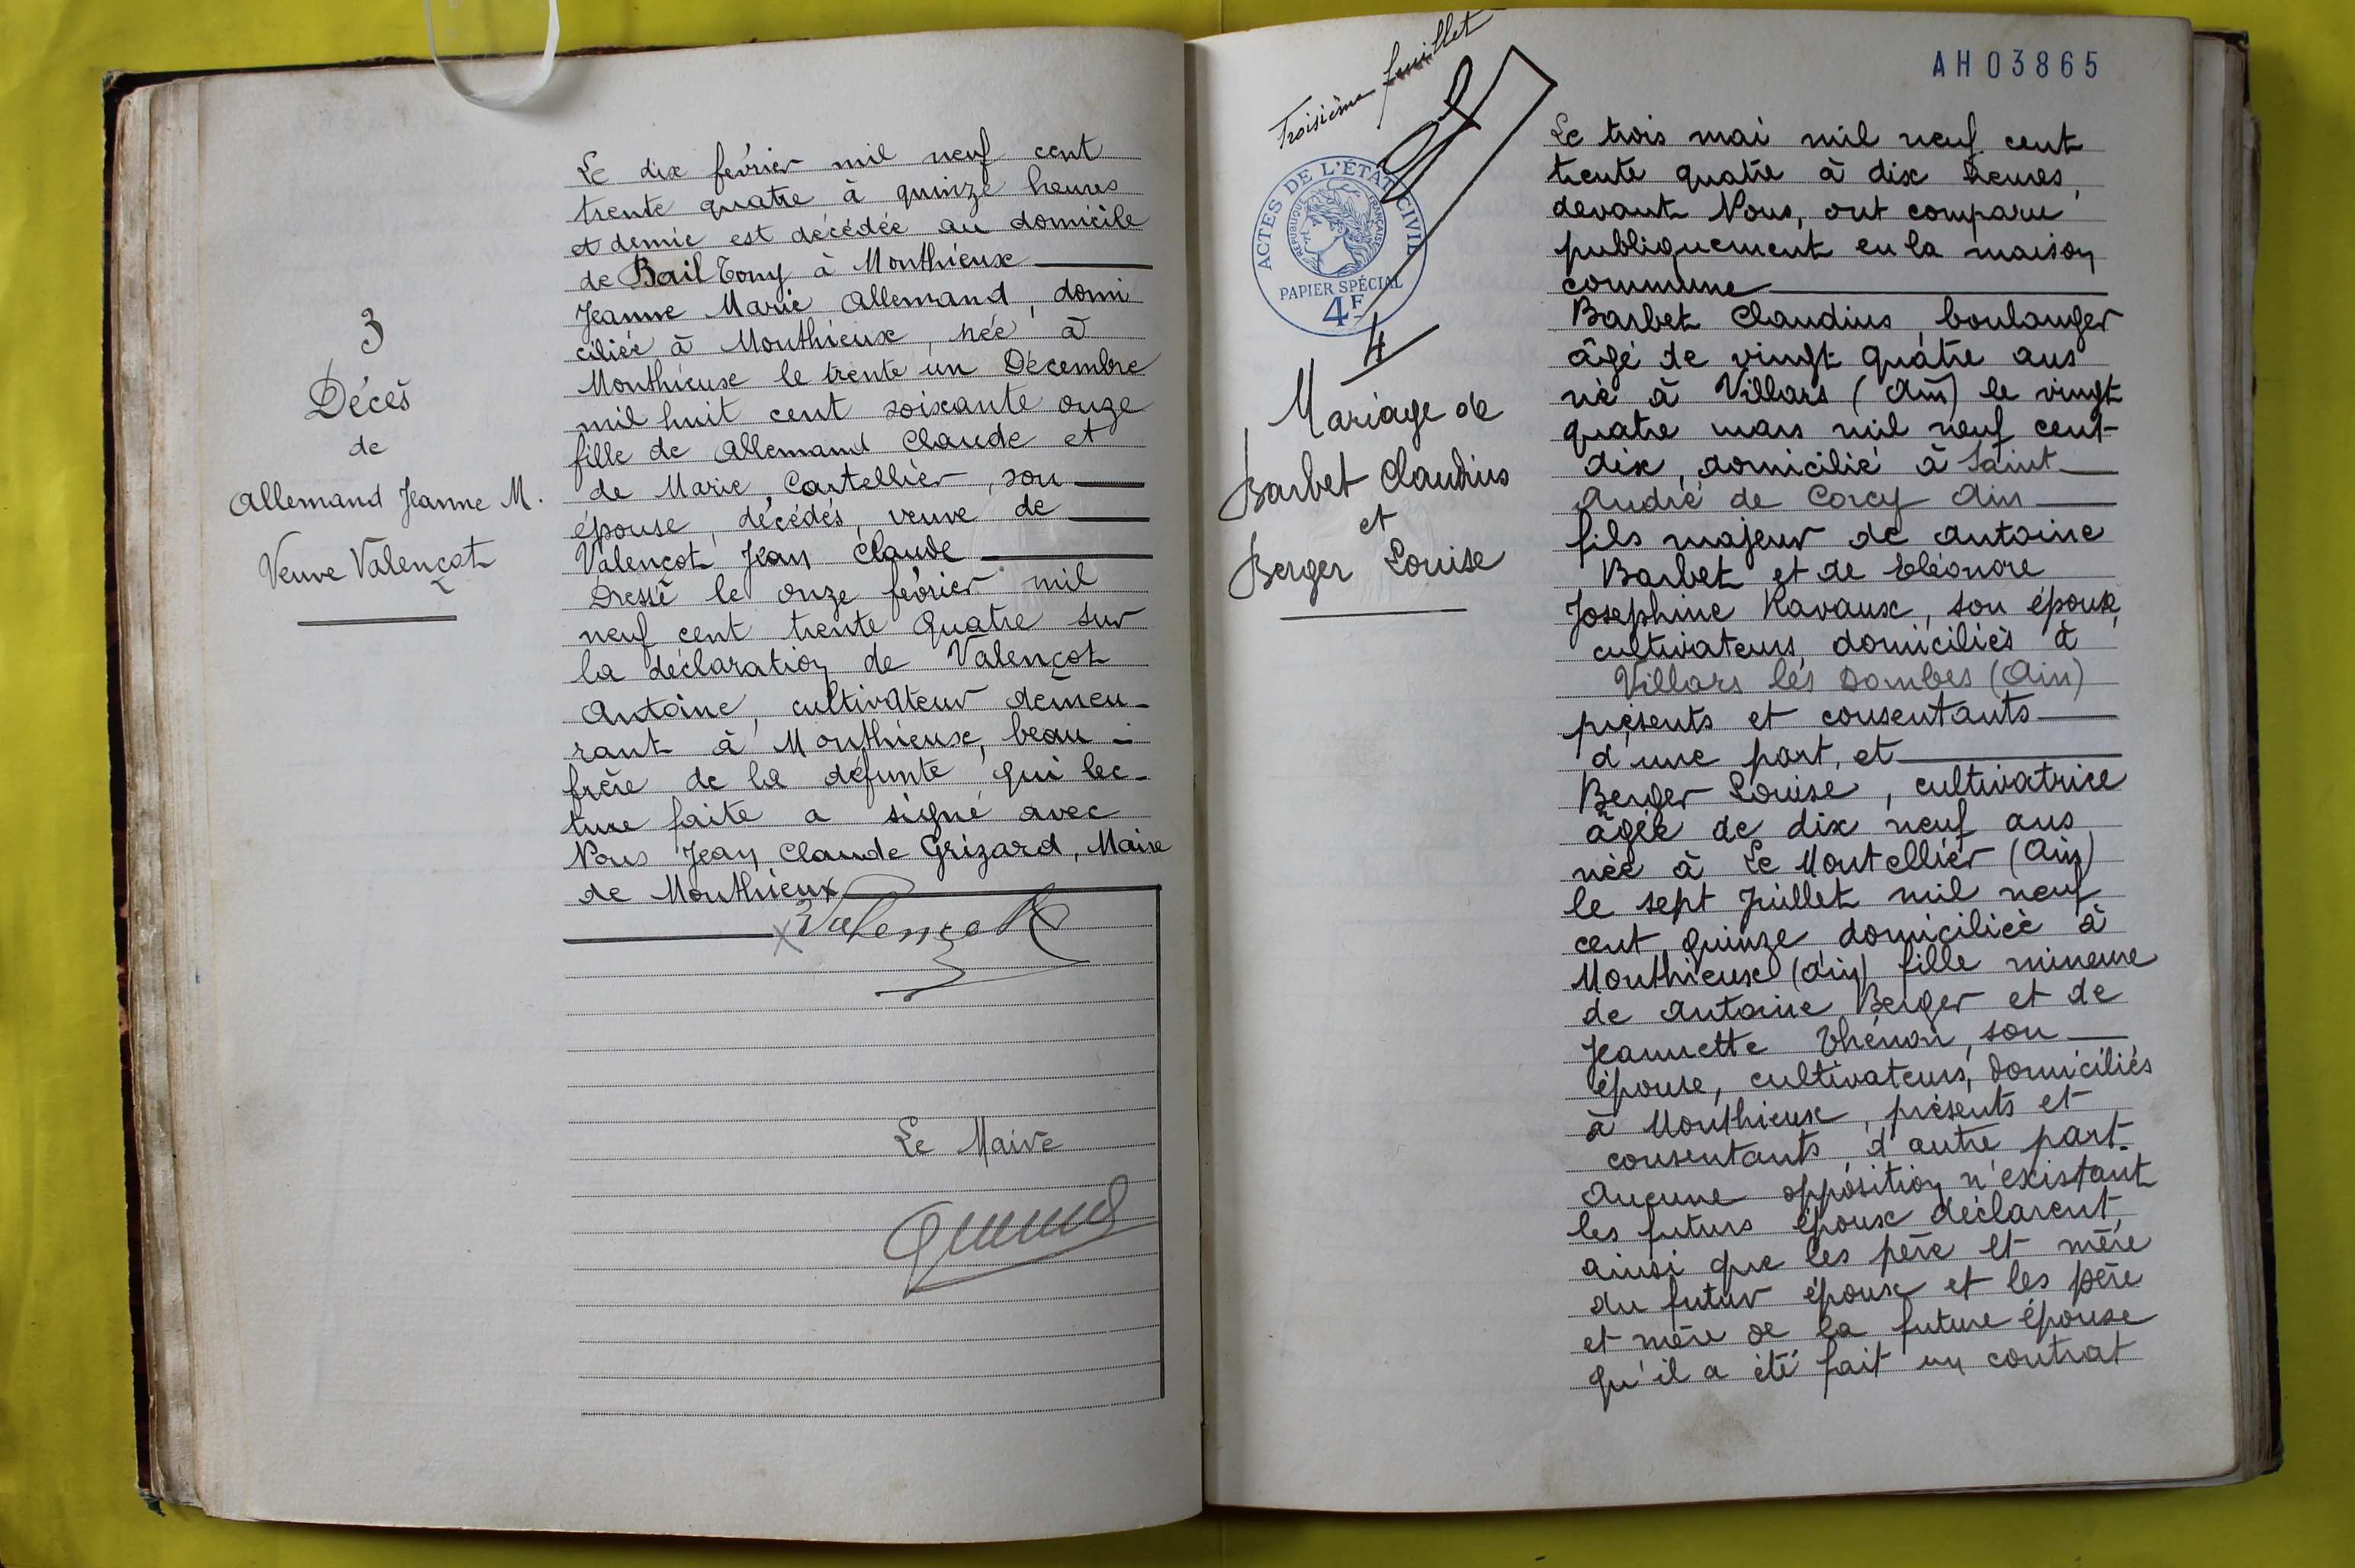 3
Décès
de
Allemand Jeanne M.
Veuve Valençot
Le dix février mil neuf cent
trente quatre à quinze heures
et demie est décédée au domicile
de Bail Tony à Monthieux
Jeanne Marie Allemand, domi
ciliée à Monthieux, née à
Monthieux le trente un Décembre
mil huit cent soixante onze
fille de Allemand Claude et
de Marie Cartellier, son
épouse, décédés, veuve de
Valençot Jean Claude
Dressé le onze février mil
neuf cent trente quatre sur
la déclaration de Valençot
Antoine, cultivateur demeu-
rant à Monthieux, beau-
frère de la défunte qui lec-
ture faite a signé avec
Nous Jean Claude Grizard, Maire
de Monthieux
Valençot
Le Maire
Troisième feuillet
ACTES DE L'ÉTAT CIVIL
RÉPUBLIQUE FRANÇAISE
PAPIER SPÉCIAL
4F
4
Mariage de
Barbet Claudius
et
Berger Louise
AH03865
Le trois mai mil neuf cent
trente quatre à dix heures,
devant Nous, ont comparu
publiquement en la maison
commune
Barbet Claudius, boulanger
âgé de vingt quatre ans
né à Villars (Ain) le vingt
quatre mars mil neuf cent
dix, domicilié à Saint
André de Corcy Ain
fils majeur de Antoine
Barbet et de Eléonore
Josephine Ravaux, son épouse,
cultivateurs domiciliés à
Villars les Dombes (Ain)
présents et consentants
d'une part, et
Berger Louise, cultivatrice
âgée de dix neuf ans
née à Le Montellier (Ain)
le sept Juillet mil neuf
cent quinze domiciliée à
Monthieux (Ain) fille mineure
de Antoine Berger et de
Jeannette Thénon, son
épouse, cultivateurs, domiciliés
à Monthieux, présents et
consentants d'autre part
Aucune opposition n'existant
les futurs époux déclarent,
ainsi que les père et mère
du futur époux et les père
et mère de la future épouse
qu'il a été fait un contrat